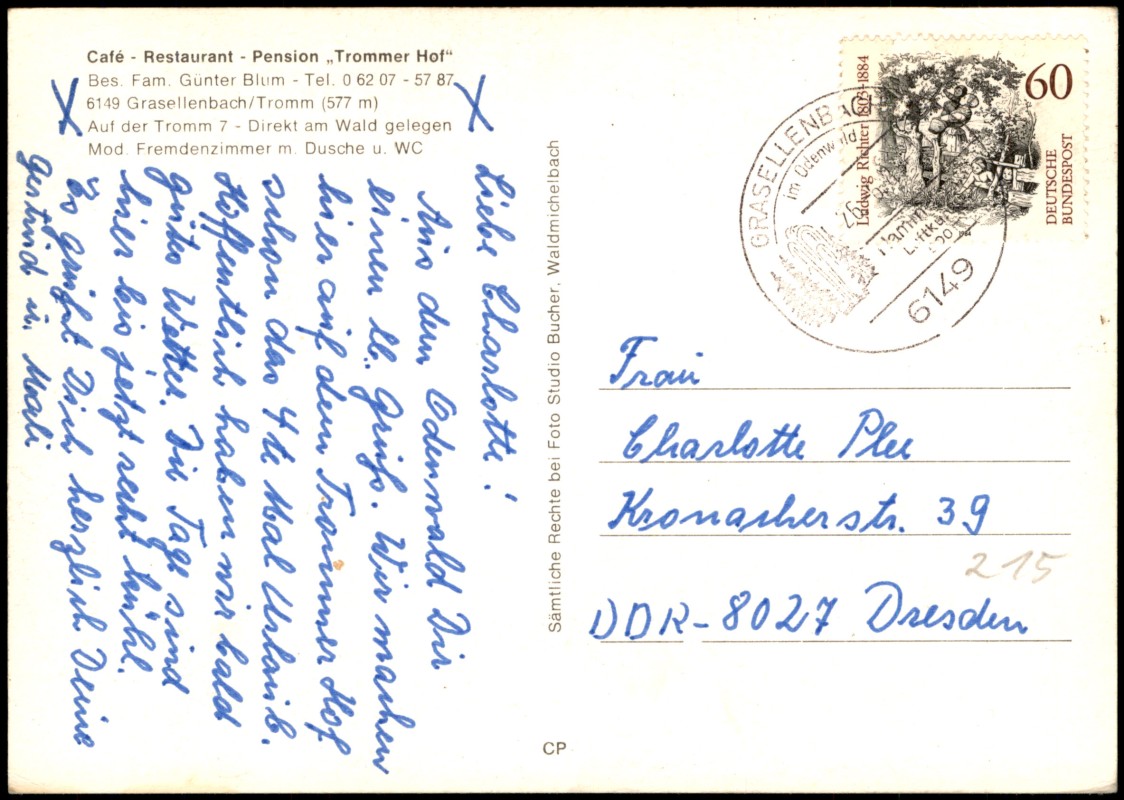 Café - Restaurant - Pension „Trommer Hof“
Bes. Fam. Günter Blum - Tel. 0 62 07 - 57 87
6149 Grasellenbach/Tromm (577 m)
Auf der Tromm 7 - Direkt am Wald gelegen
Mod. Fremdenzimmer m. Dusche u. WC
Liebe Charlotte!
Aus dem Odenwald Dir
einen lb. Gruß. Wir machen
hier auf dem Trommer Hof
schon das 4te Mal Urlaub.
Hoffentlich haben wir bald
gutes Wetter. Die Tage sind
hier bis jetzt recht kühl.
Es grüßt Dich herzlich Deine
Gertrud u. Mali
Sämtliche Rechte bei Foto Studio Bucher, Waldmichelbach
CP
GRASELLENBACH
im Odenwald
6149
Ludwig Richter 1803-1884
60
DEUTSCHE
BUNDESPOST
Frau
Charlotte Plee
Kronacherstr. 39
215
DDR-8027 Dresden